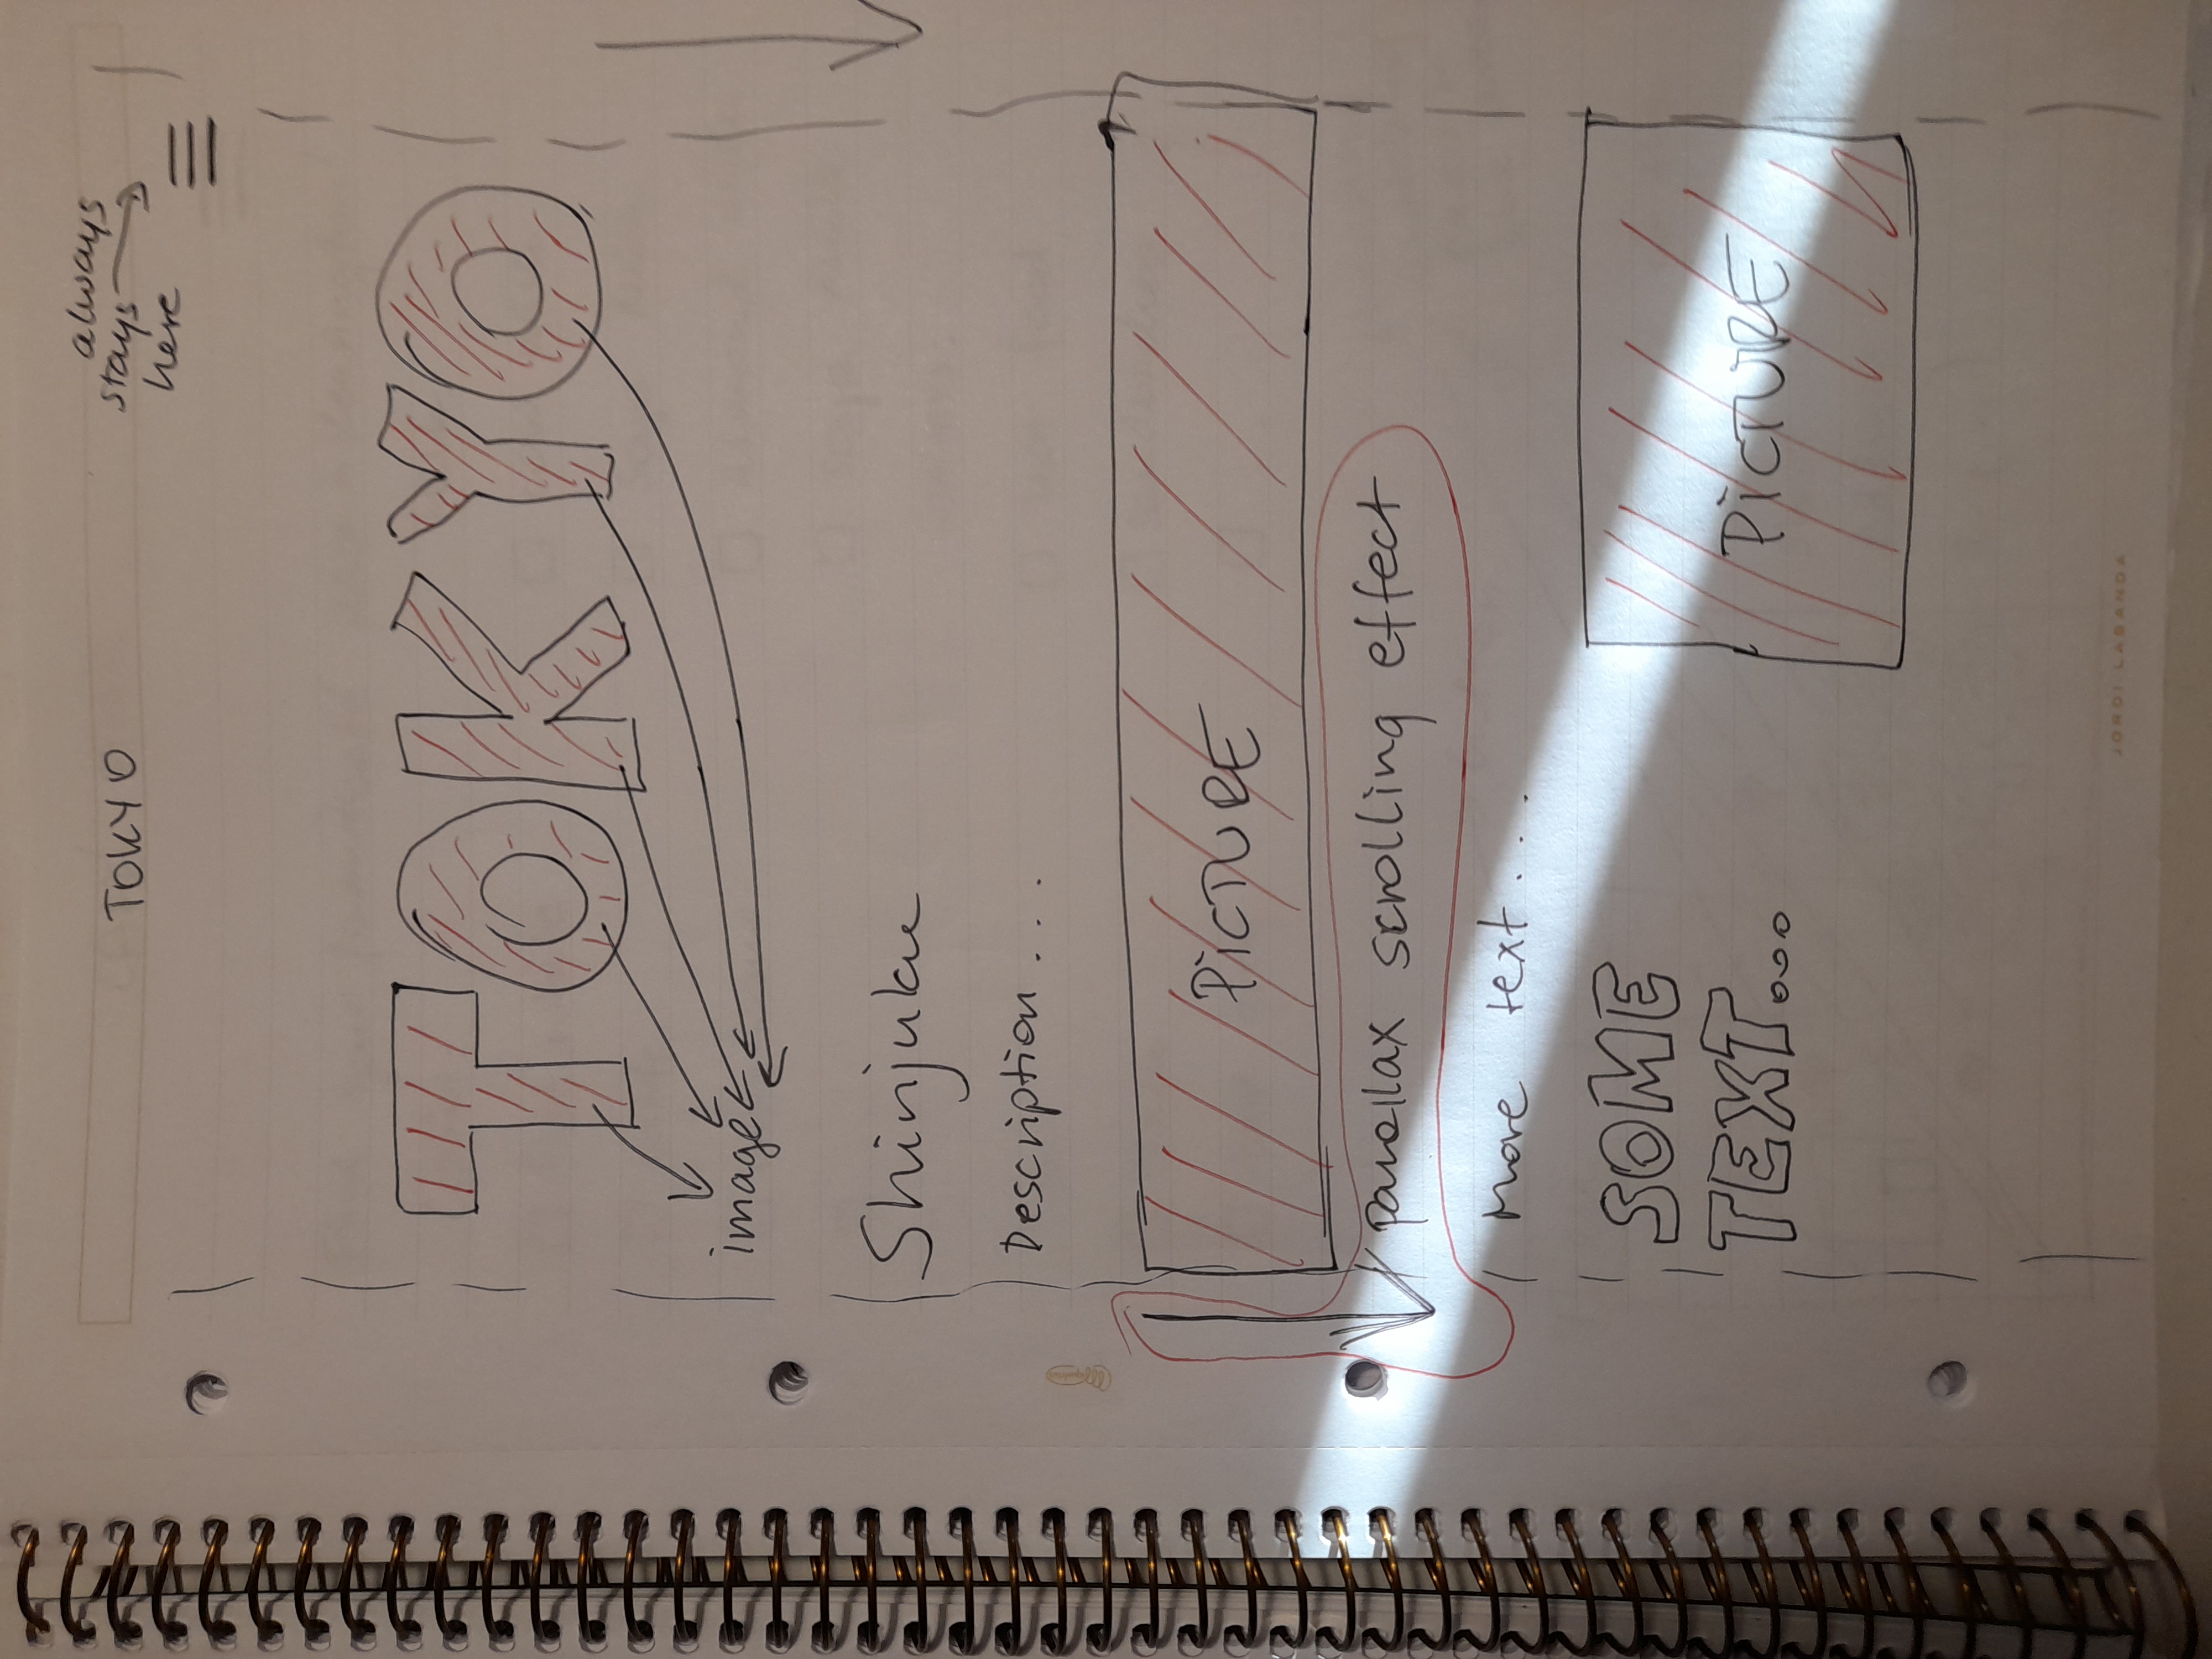 TOKYO
always
stays
here
TOKYO
image
Shinjuku
Description ...
PiCTURE
parallax scrolling effect
More text ...
SOME
TEXT...
PiCTURE
JORDI LABANDA